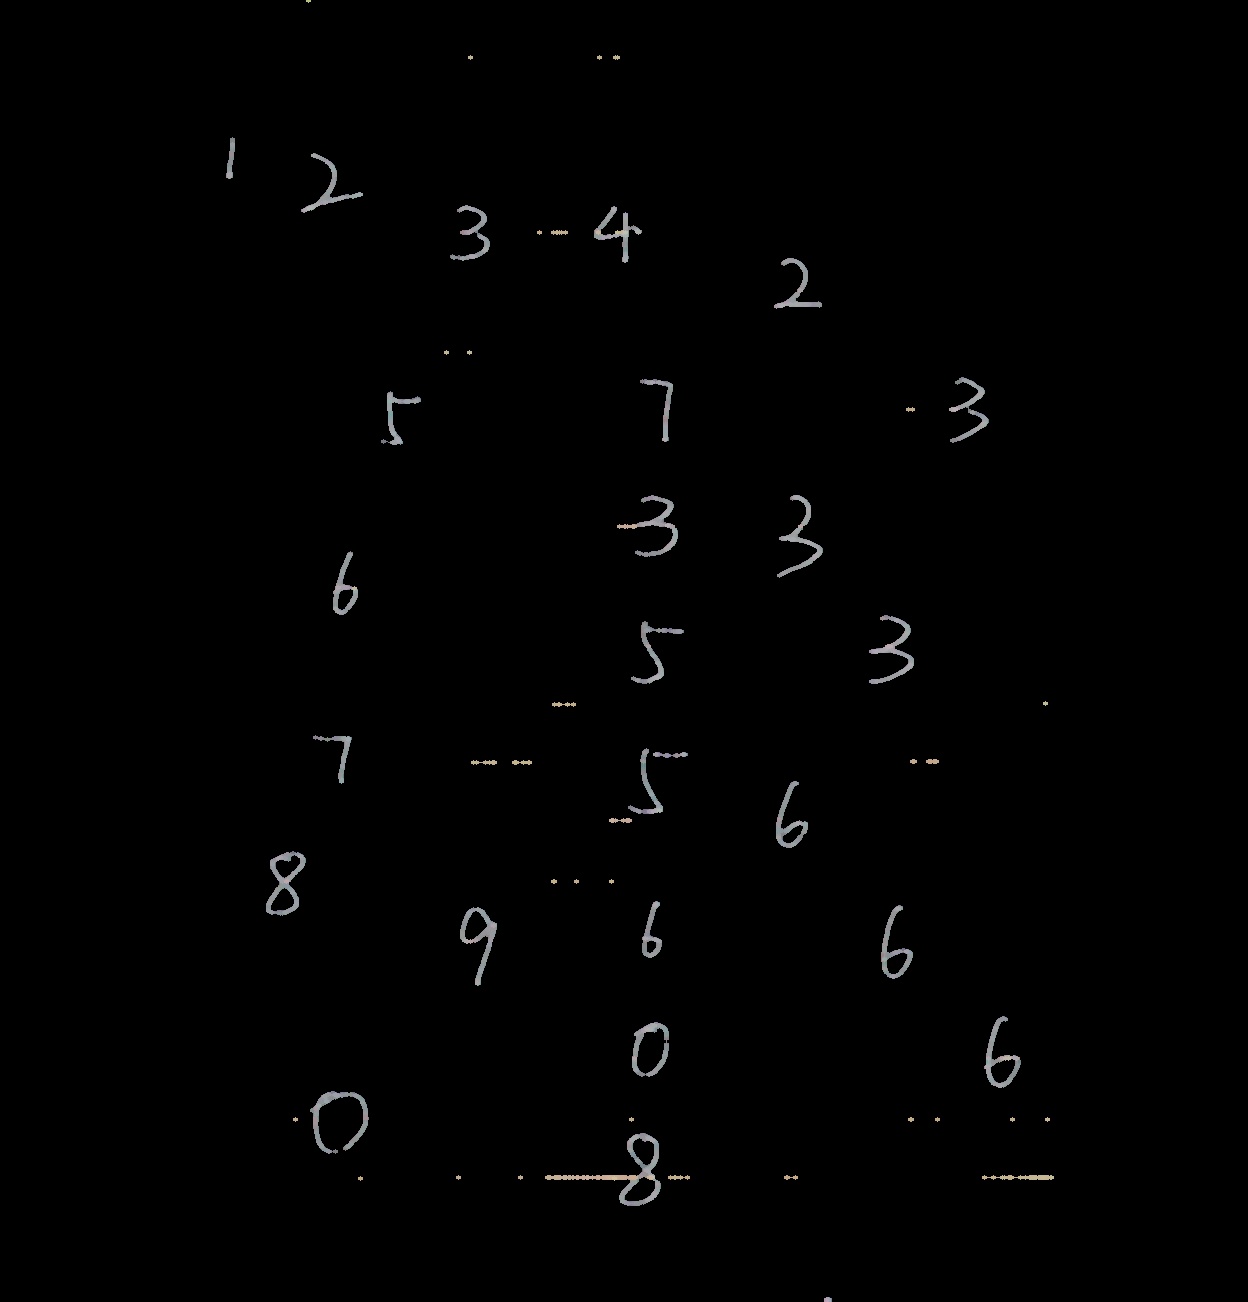 1 2
3 4
2
5 7 3
3 3
6
5 3
7 5
6
8
9 6 6
0 6
0
8